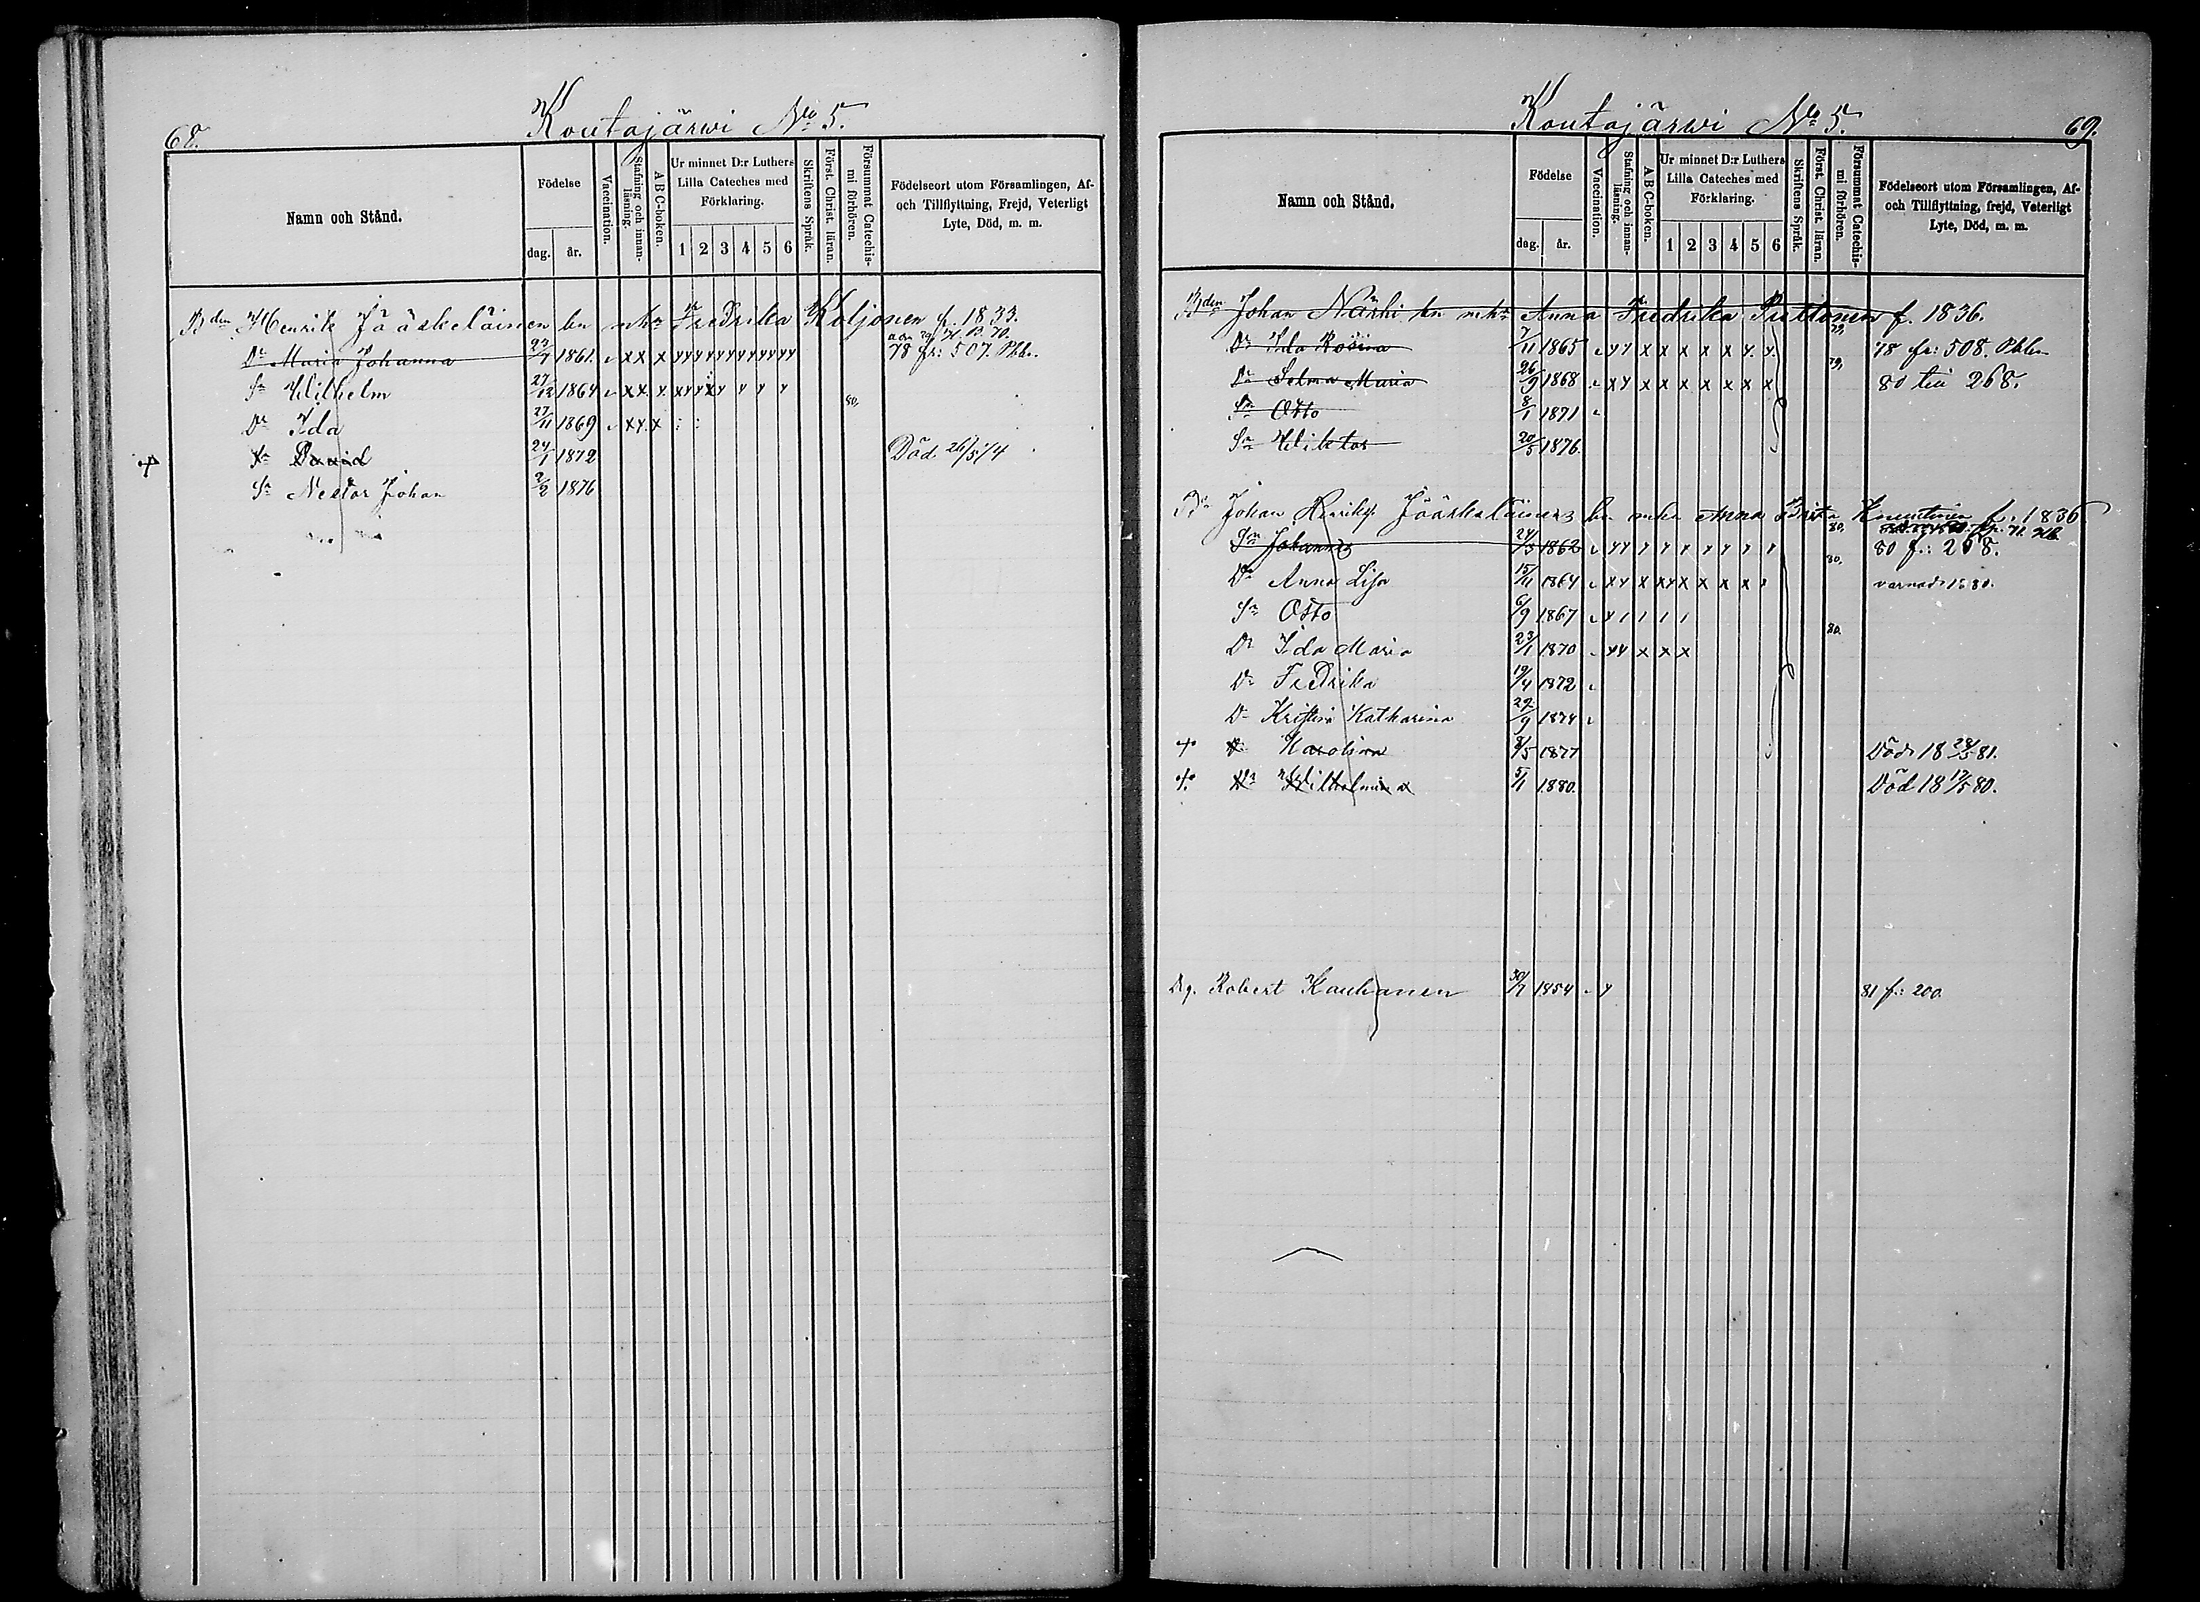 68.
Koutajärwi No 5.
Namn och Stånd.
Födelse
dag.
år.
Vaccination.
Stafning och innanläsning.
A B C-boken.
Ur minnet D:r Luthers Lilla Cateches med Förklaring.
1 2 3 4 5 6
Skriftens Språk.
Först. Christ. läran.
Försummat Catechismi förhören.
Födelseort utom Församlingen, Af- och Tillflyttning, Frejd, Veterligt Lyte, Död, m. m.
Bden Henrik Jääskeläinen hu Fredrika Koljonen f. 1833.
Dr Maria Johanna 1861. 78 fr: 507. Pbbn.
Sn Wilhelm 27/12 1864
80.
Dr Ida 27/11 1869
Sn David 24/1 1872 Död 26/5 74
Sn Nestor Johan 2/2 1876
Koutajärwi No 5.
69.
Namn och Stånd.
Födelse
dag.
år.
Vaccination.
Stafning och innanläsning.
A B C-boken.
Ur minnet D:r Luthers Lilla Cateches med Förklaring.
1 2 3 4 5 6
Skriftens Språk.
Först. Christ. läran.
Försummat Catechismi förhören.
Födelseort utom Församlingen, Af- och Tillflyttning, frejd, Veterligt Lyte, Död, m. m.
Bden Johan Närhi hu Anna Fredrika Puttonen f. 1836.
79.
Dr Ida Rosina 7/11 1865 x x x x x 78 fr: 508. Pbbn
79.
Dr Selma Maria 26/9 1868 x x x x x x x 80 till 268.
Sn Otto 8/1 1871
Sn Wiktor 20/5 1876.
Johan Henriks. Jääskeläinen hu Anna Brita f. 1836
80.
Sn Johannes 24/5 1862 80 fr: 268.
80.
Dr Anna Lisa 15/11 1864 varnad 1880.
Sn Otto 6/9 1867
80.
Dr Ida Maria 23/1 1870 x x x
Dr Fredrika 19/4 1872
Dr Kristina Katharina 29/9 1874
Dr Karolina 8/5 1877 Död 18 28/5 81.
Dr Wilhelmina 5/1 1880. Död 18 12/5 80.
Drg. Robert Kauhanen 30/7 1854 81 fr: 200.